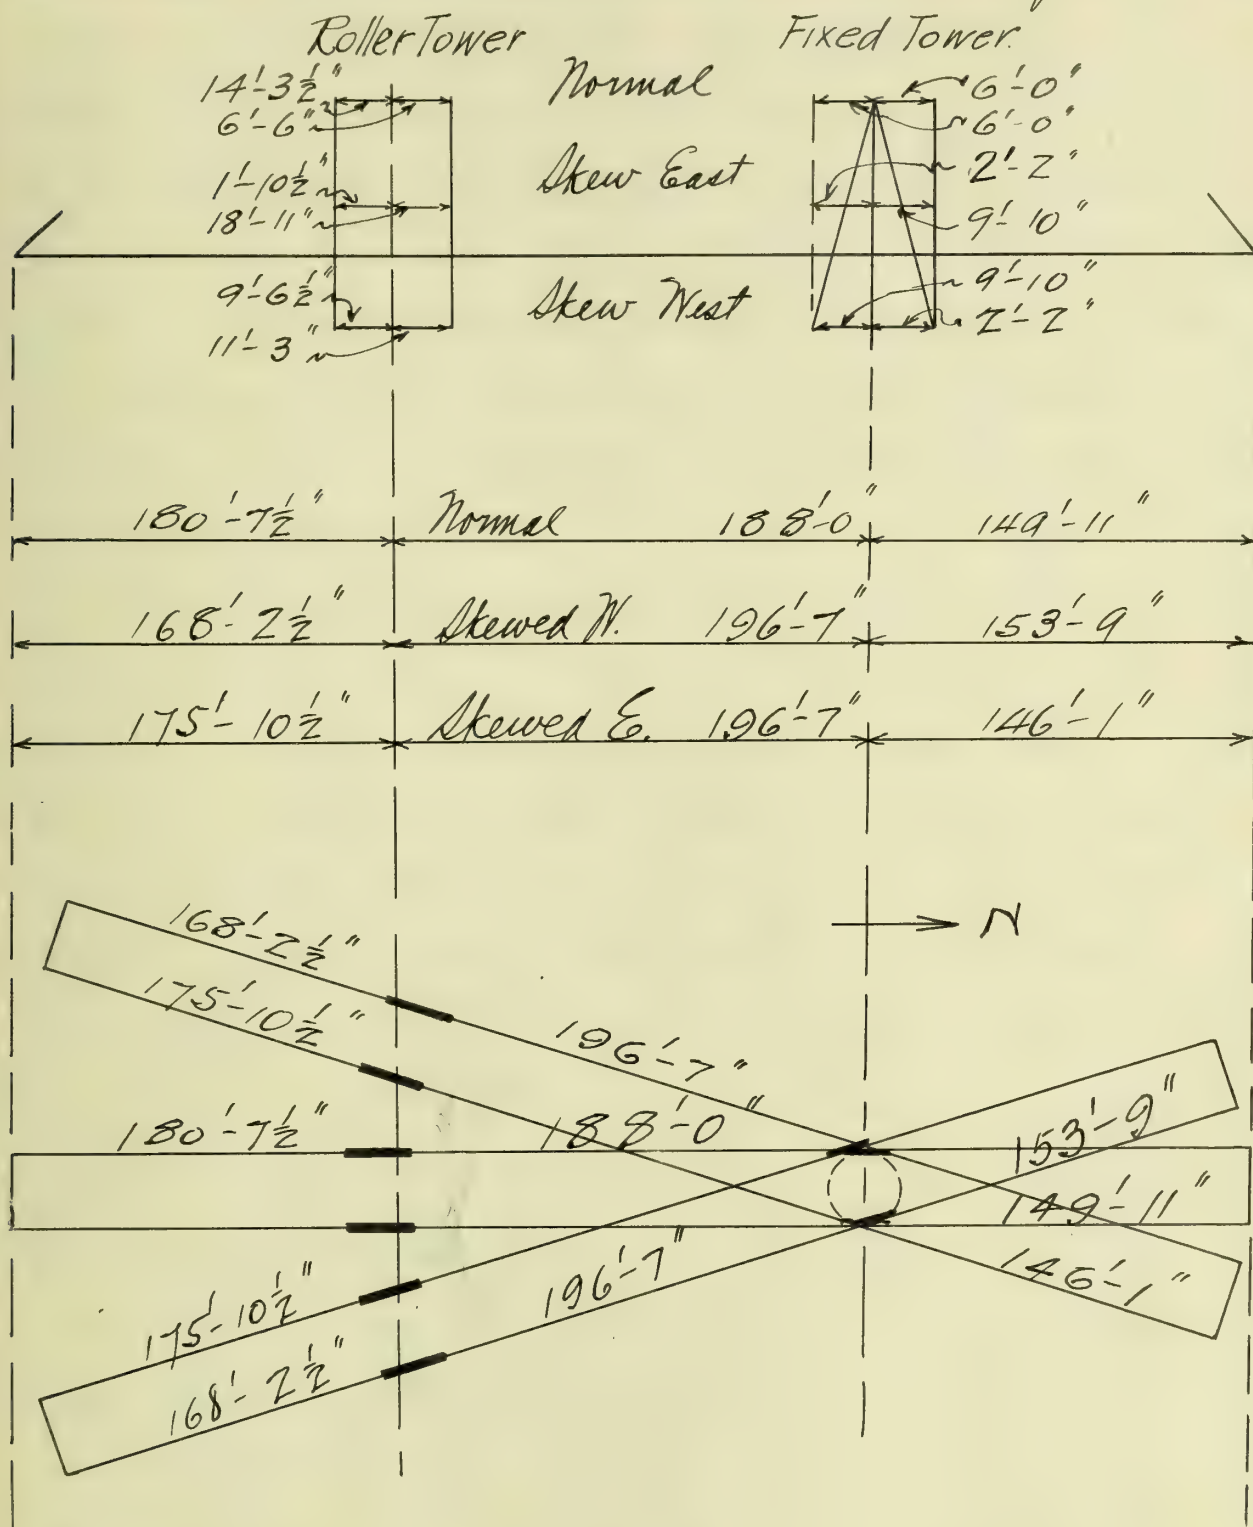 Roller Tower Fixed Tower.
14'-3½" Normal 6'-0"
6'-6" 6'-0"
1'-10½" Skew East 2'-2"
18'-11" 9'-10"
9'-6½" Skew West 9'-10"
11'-3" 2'-2"
180'-7½" Normal 188'-0" 149'-11"
168'-2½" Skewed W. 196'-7" 153'-9"
175'-10½" Skewed E. 196'-7" 146'-1"
N
168'-2½"
175'-10½"
196'-7"
180'-7½" 188'-0" 153'-9"
149'-11"
175'-10½" 196'-7" 146'-1"
168'-2½"